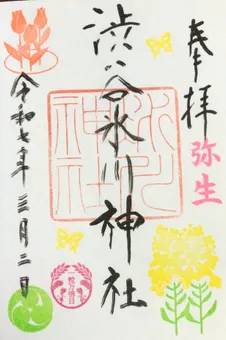 奉拝
弥生
渋谷氷川神社
氷川
神社
令和七年三月二日